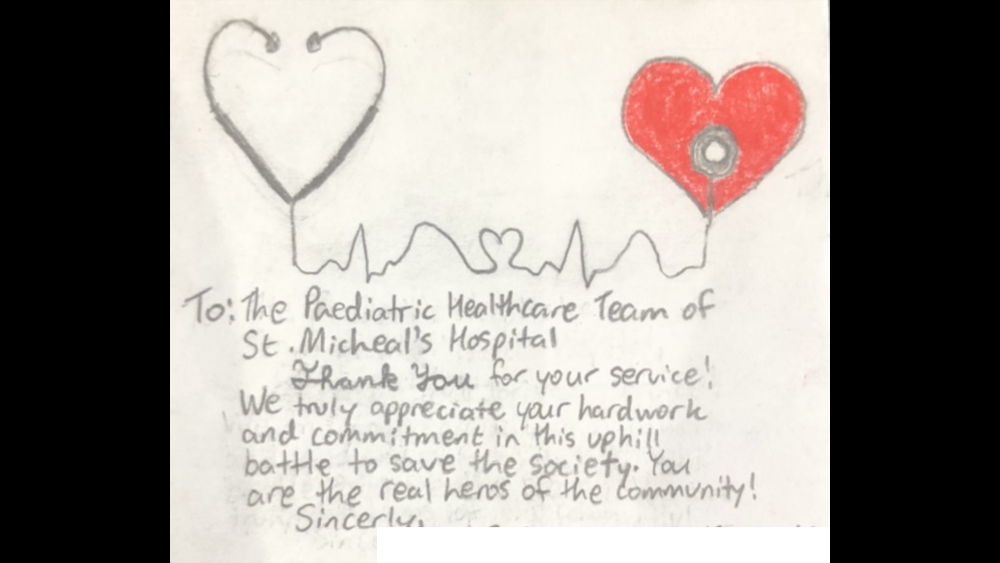 To: The Paediatric Healthcare Team of
St. Micheal's Hospital
Thank You for your service!
We truly appreciate your hardwork
and commitment in this uphill
battle to save the society. You
are the real heros of the community!
Sincerly,